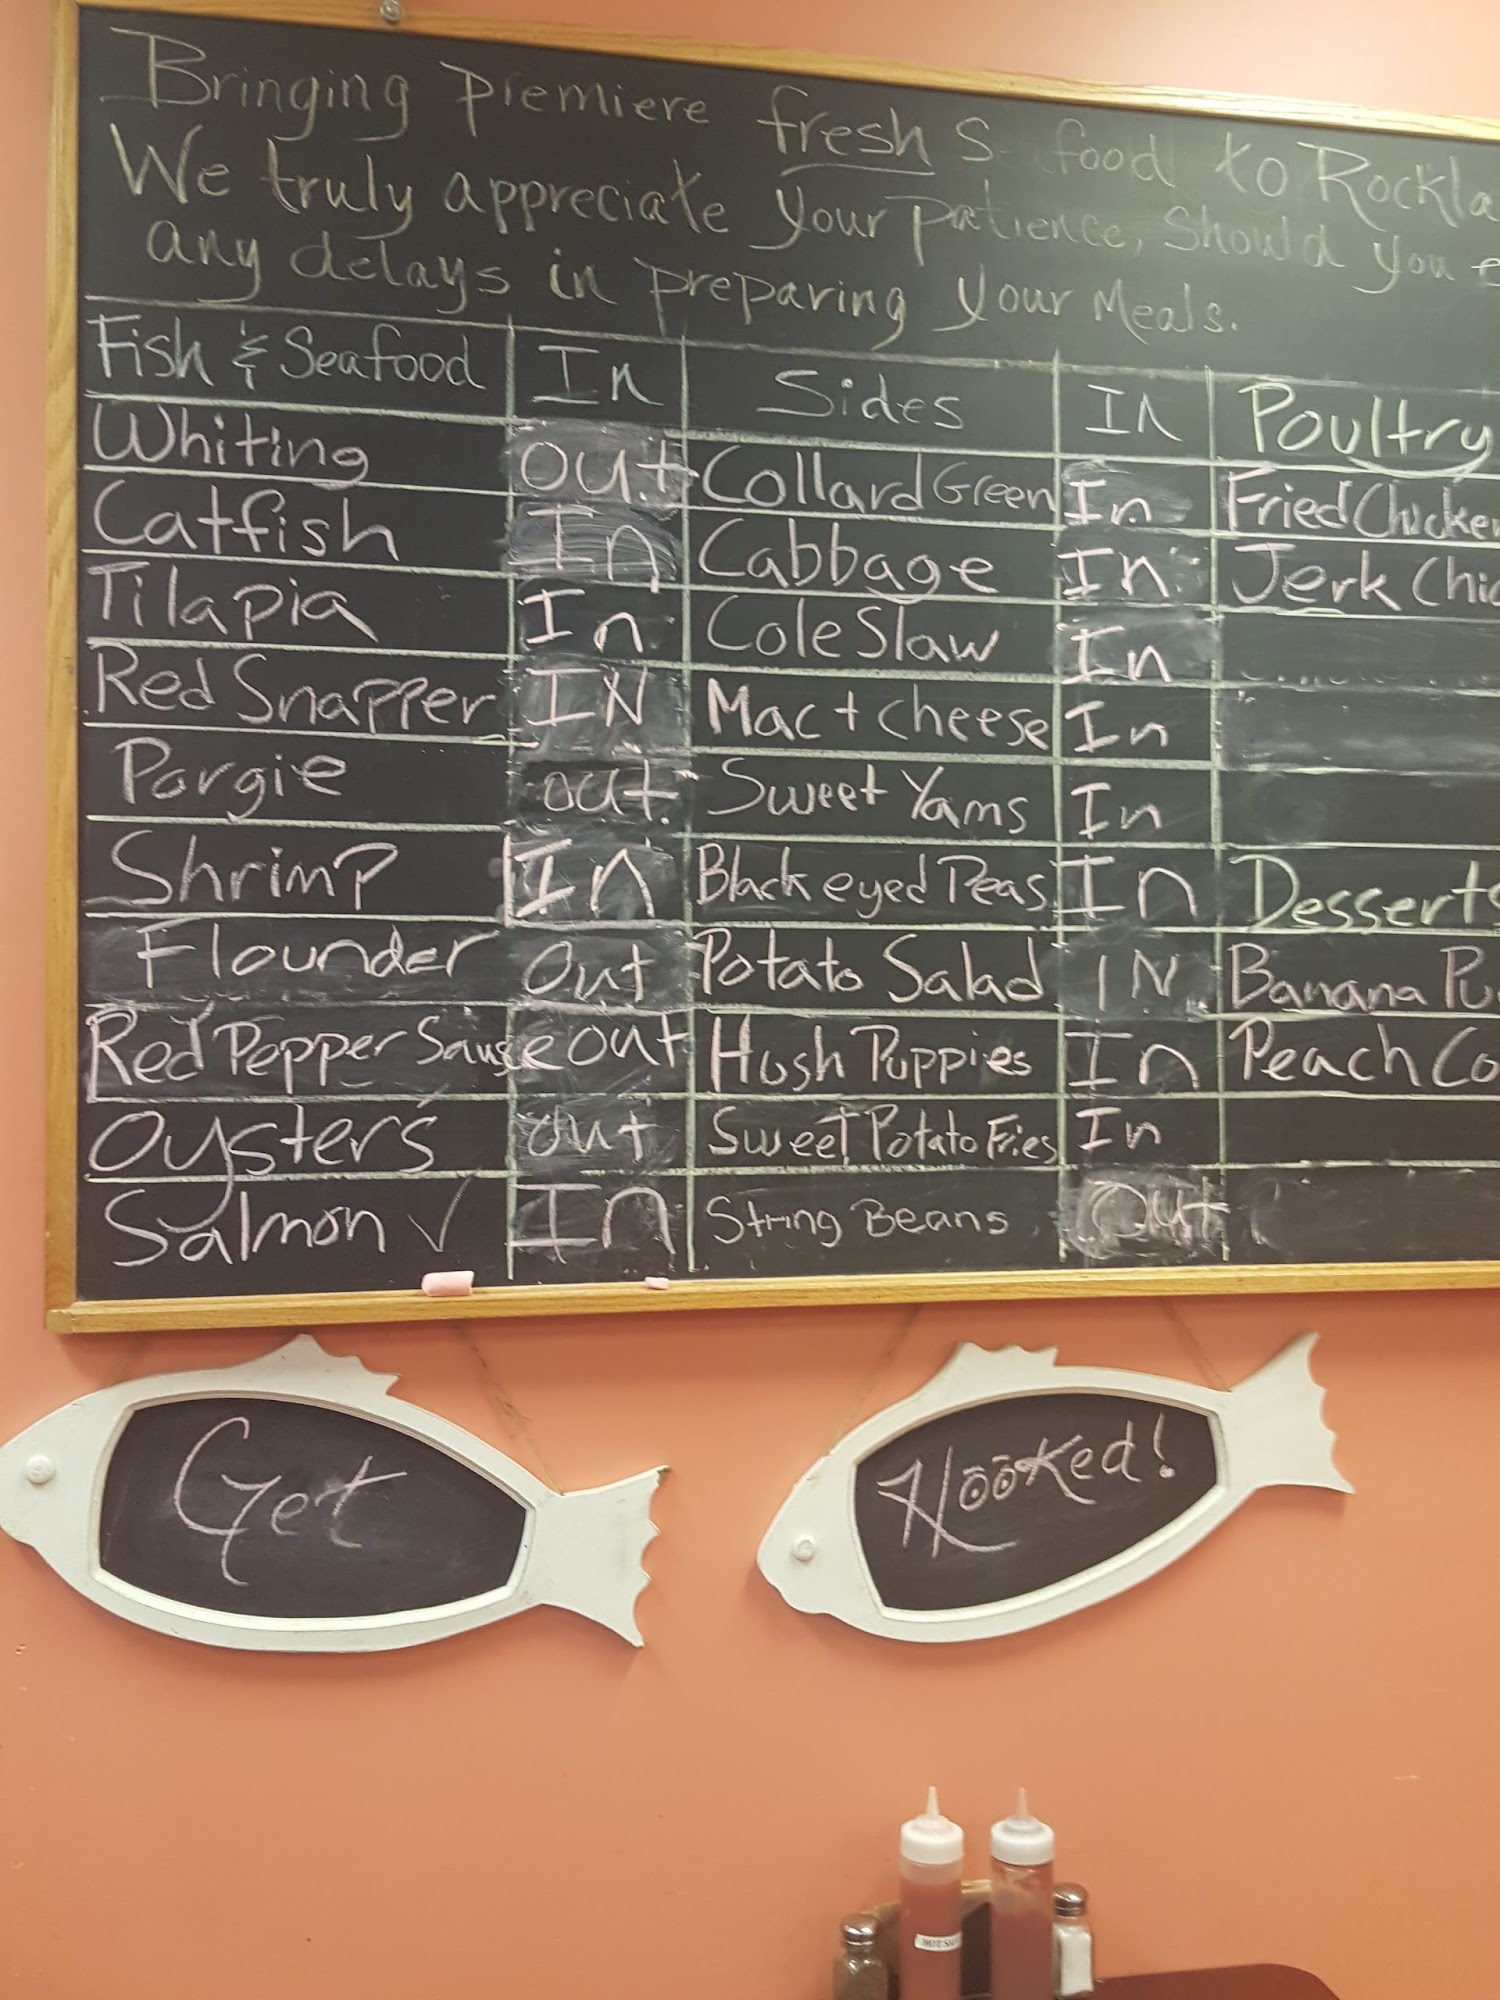 Bringing premiere fresh Seafood to Rockla
We truly appreciate your patience, Should you e
any delays in preparing your Meals.
Fish & Seafood In Sides In Poultry
Whiting Out Collard Green In Fried Chicken
Catfish In Cabbage In Jerk Chic
Tilapia In Cole Slaw In
Red Snapper IN Mac + cheese In
Porgie out Sweet Yams In
Shrimp In Black eyed Peas In Desserts
Flounder Out Potato Salad IN Banana Pu
Red Pepper Sause out Hush Puppies In Peach Co
Oysters out Sweet Potato Fries In
Salmon ✓ In String Beans Out
Get
Hooked!
HOT SA